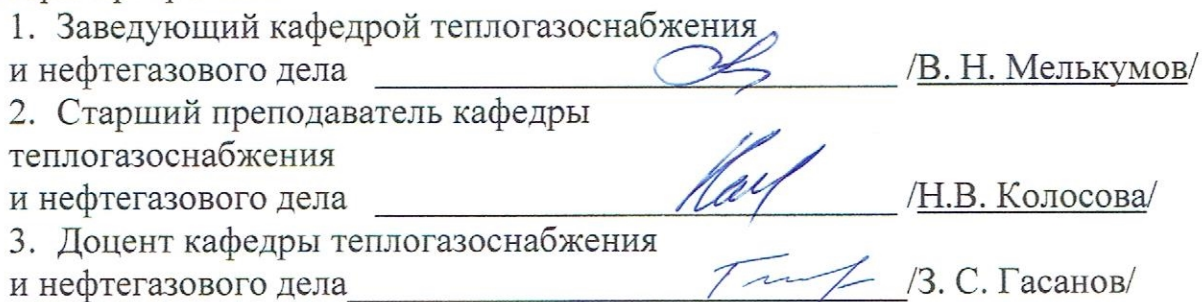 1. Заведующий кафедрой теплогазоснабжения
и нефтегазового дела /В. Н. Мелькумов/
2. Старший преподаватель кафедры
теплогазоснабжения
и нефтегазового дела /Н.В. Колосова/
3. Доцент кафедры теплогазоснабжения
и нефтегазового дела /З. С. Гасанов/